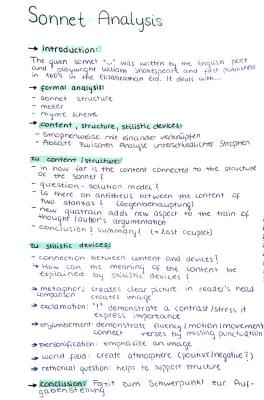 Sonnet Analysis
→ introduction:
The given sonnet "..." was written by the English poet
and playwright William Shakespeare and first published
in 1609 in the Elizabethan Era. It deals with...
→ formal analysis:
- sonnet structure
- meter
- rhyme scheme
→ content, structure, stilistic devices:
- Strophenweise mit einander verknüpfen
- Absatz zwischen Analyse unterschiedlicher Strophen
zu content / structure:
- in how far is the content connected to the structure
of the sonnet?
- question - solution model?
- is there an antithesis between the content of
two stanzas? (Gegenbehauptung)
- new quatrain adds new aspect to the train of
thought / author's argumentation
- conclusion? summary? (→ last couplet)
zu stilistic devices:
- connection between content and devices?
↳ How can the meaning of the content be
explained by stilistic devices?
→ metaphor: creates clear picture in reader's head
comparison creates image
→ exclamation: "!" demonstrate a contrast / stress it
express importance
→ enjambement: demonstrate fluency / motion / movement
connect verses by missing punctuation
→ personification: emphasize an image
→ world feed: create atmosphere (positive / negative?)
→ rethorical question: helps to support structure
→ conclusion: Fazit zum Schwerpunkt zur Auf-
gabenstellung